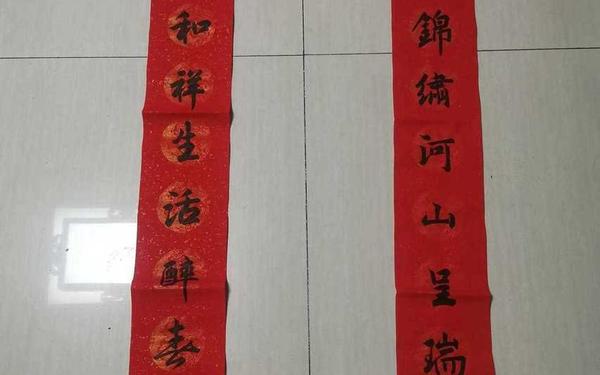 錦繡河山呈瑞
和祥生活醉春